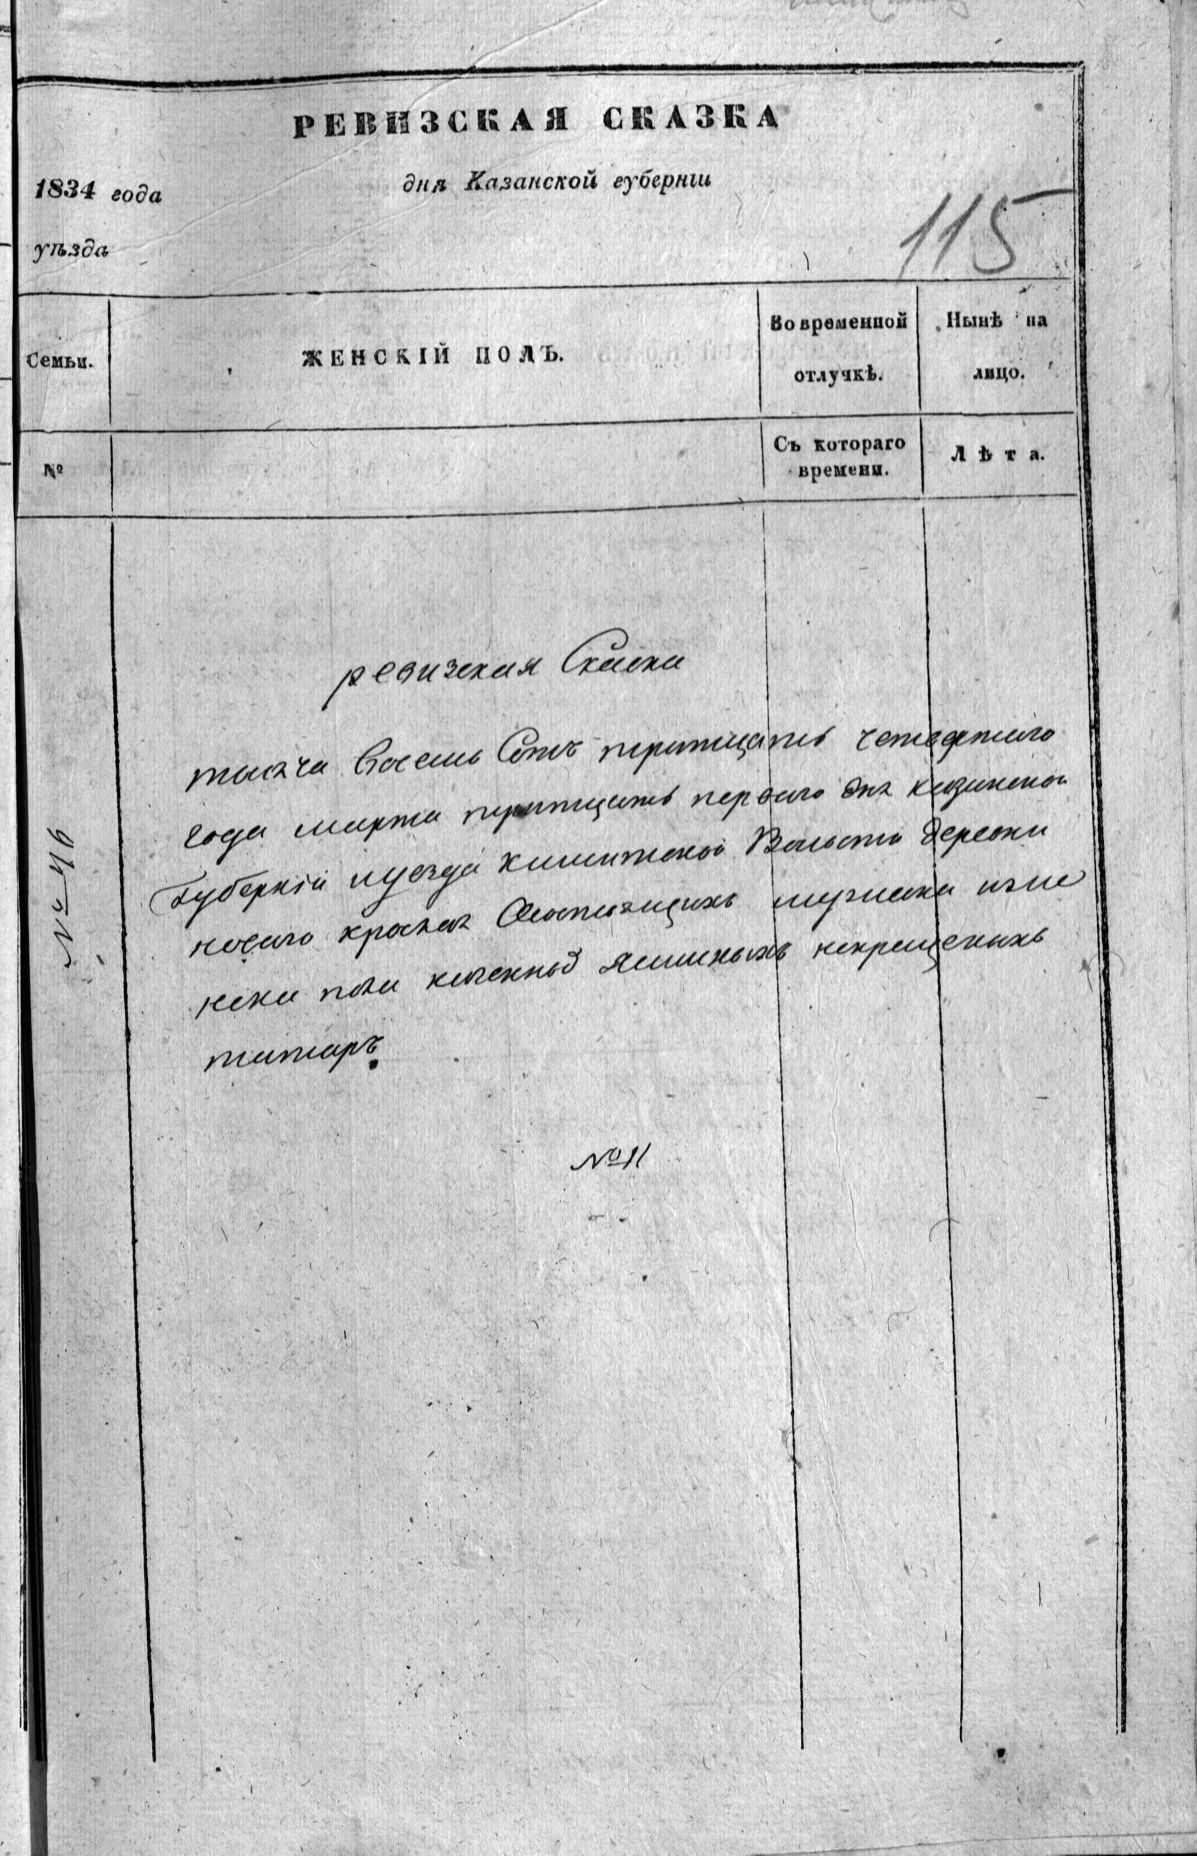 РЕВИЗСКАЯ СКАЗКА
1834 года
дня Казанской губерніи
уѣзда
115
Семьи.
ЖЕНСКІЙ ПОЛЪ.
Во временной
отлучкѣ.
Нынѣ на
лицо.
№
Съ котораго
времени.
Лѣта.
ревизская Скаска
тысяча восемь Сотъ тритцать четвертого
года марта тритцать первого дня казанской
Губерніи и уезда Волости деревни
новаго состоящихъ мужска и же
нска пола ясашныхъ некрещеныхъ
татаръ
№ 11
№ 46